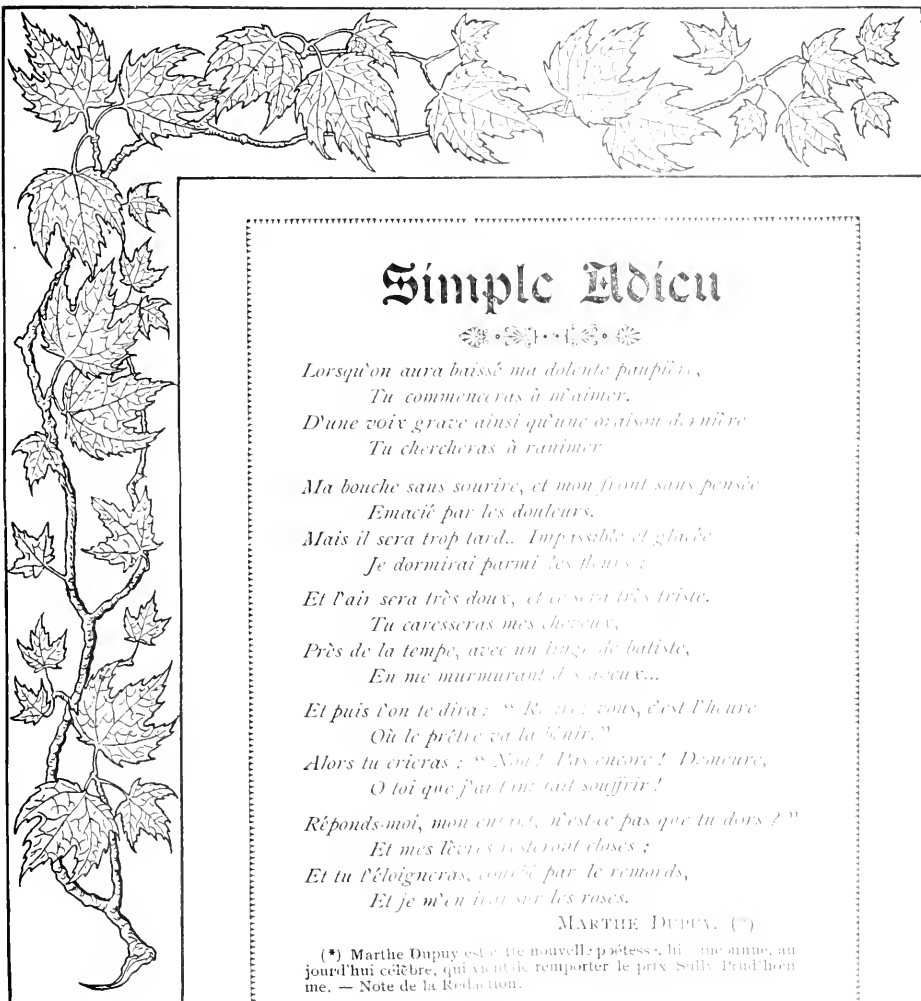 Simple Adieu
Lorsqu'on aura baissé ma dolente paupière,
Tu commenceras à m'aimer.
D'une voix grave ainsi qu'une oraison dernière
Tu chercheras à ranimer
Ma bouche sans sourire, et mon front sans pensée
Emacié par les douleurs.
Mais il sera trop tard.. Impassible et glacée
Je dormirai parmi les fleurs ;
Et l'air sera très doux, et ce sera très triste.
Tu caresseras mes cheveux,
Près de la tempe, avec un linge de batiste,
En me murmurant des aveux...
Et puis l'on te dira : " Retirez-vous, c'est l'heure
Où le prêtre va la bénir."
Alors tu crieras : " Non ! Pas encore ! Demeure,
O toi que j'ai tant fait souffrir !
Réponds-moi, mon enfant, n'est-ce pas que tu dors ? "
Et mes lèvres resteront closes ;
Et tu t'éloigneras, courbé par le remords,
Et je m'en irai sur les roses.
MARTHE DUPUY. (*)
(*) Marthe Dupuy est cette nouvelle poétesse, hier inconnue, au
jourd'hui célèbre, qui vient de remporter le prix Sully Prud'hom
me. — Note de la Rédaction.